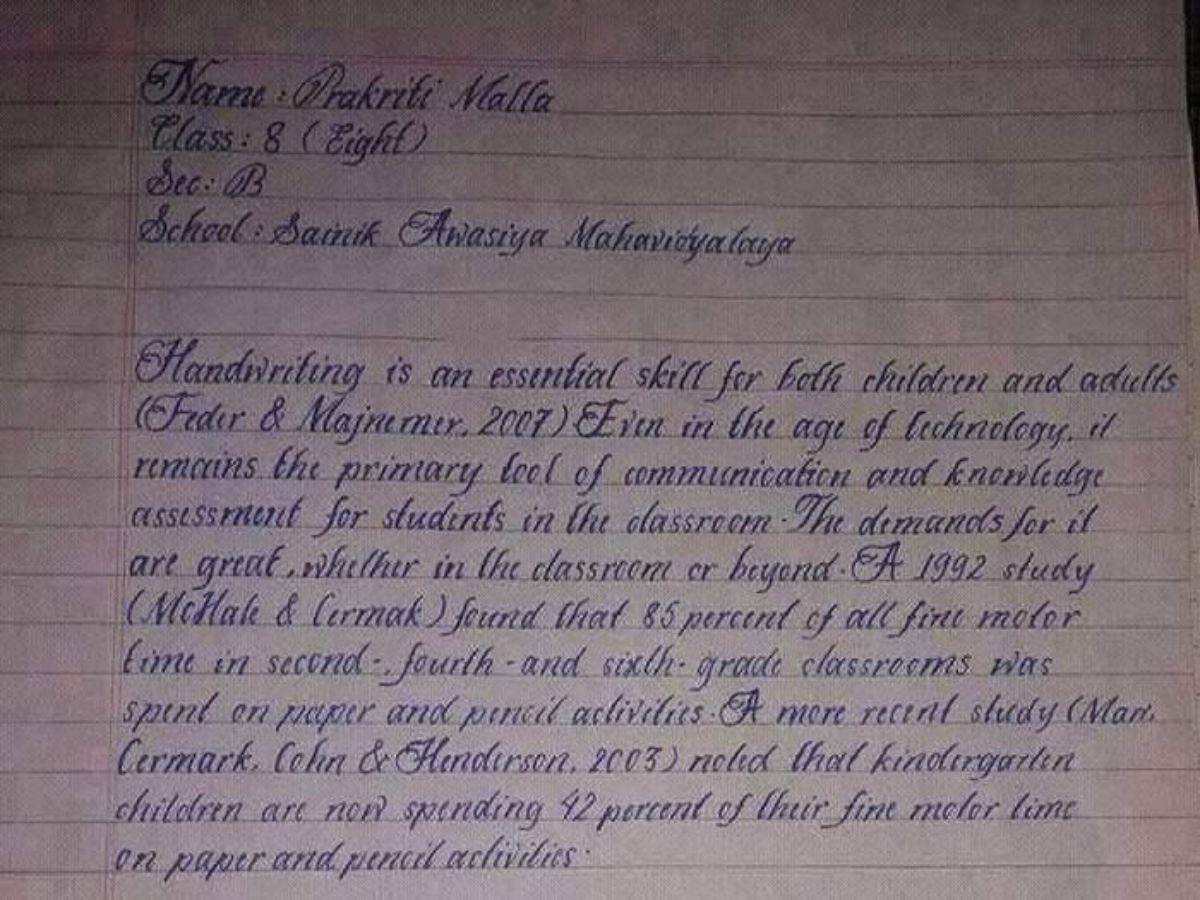 Name : Prakriti Malla
Class : 8 ( Eight )
Sec : B
School : Sainik Awasiya Mahavidyalaya
Handwriting is an essential skill for both children and adults
(Feder & Majnemer, 2007) Even in the age of technology, it
remains the primary tool of communication and knowledge
assessment for students in the classroom. The demands for it
are great, whether in the classroom or beyond. A 1992 study
(McHale & Cermak) found that 85 percent of all fine motor
time in second-, fourth - and sixth- grade classrooms was
spent on paper and pencil activities. A more recent study (Marr,
Cermark, Cohn & Henderson, 2003) noted that kindergarten
children are now spending 42 percent of their fine motor time
on paper and pencil activities.